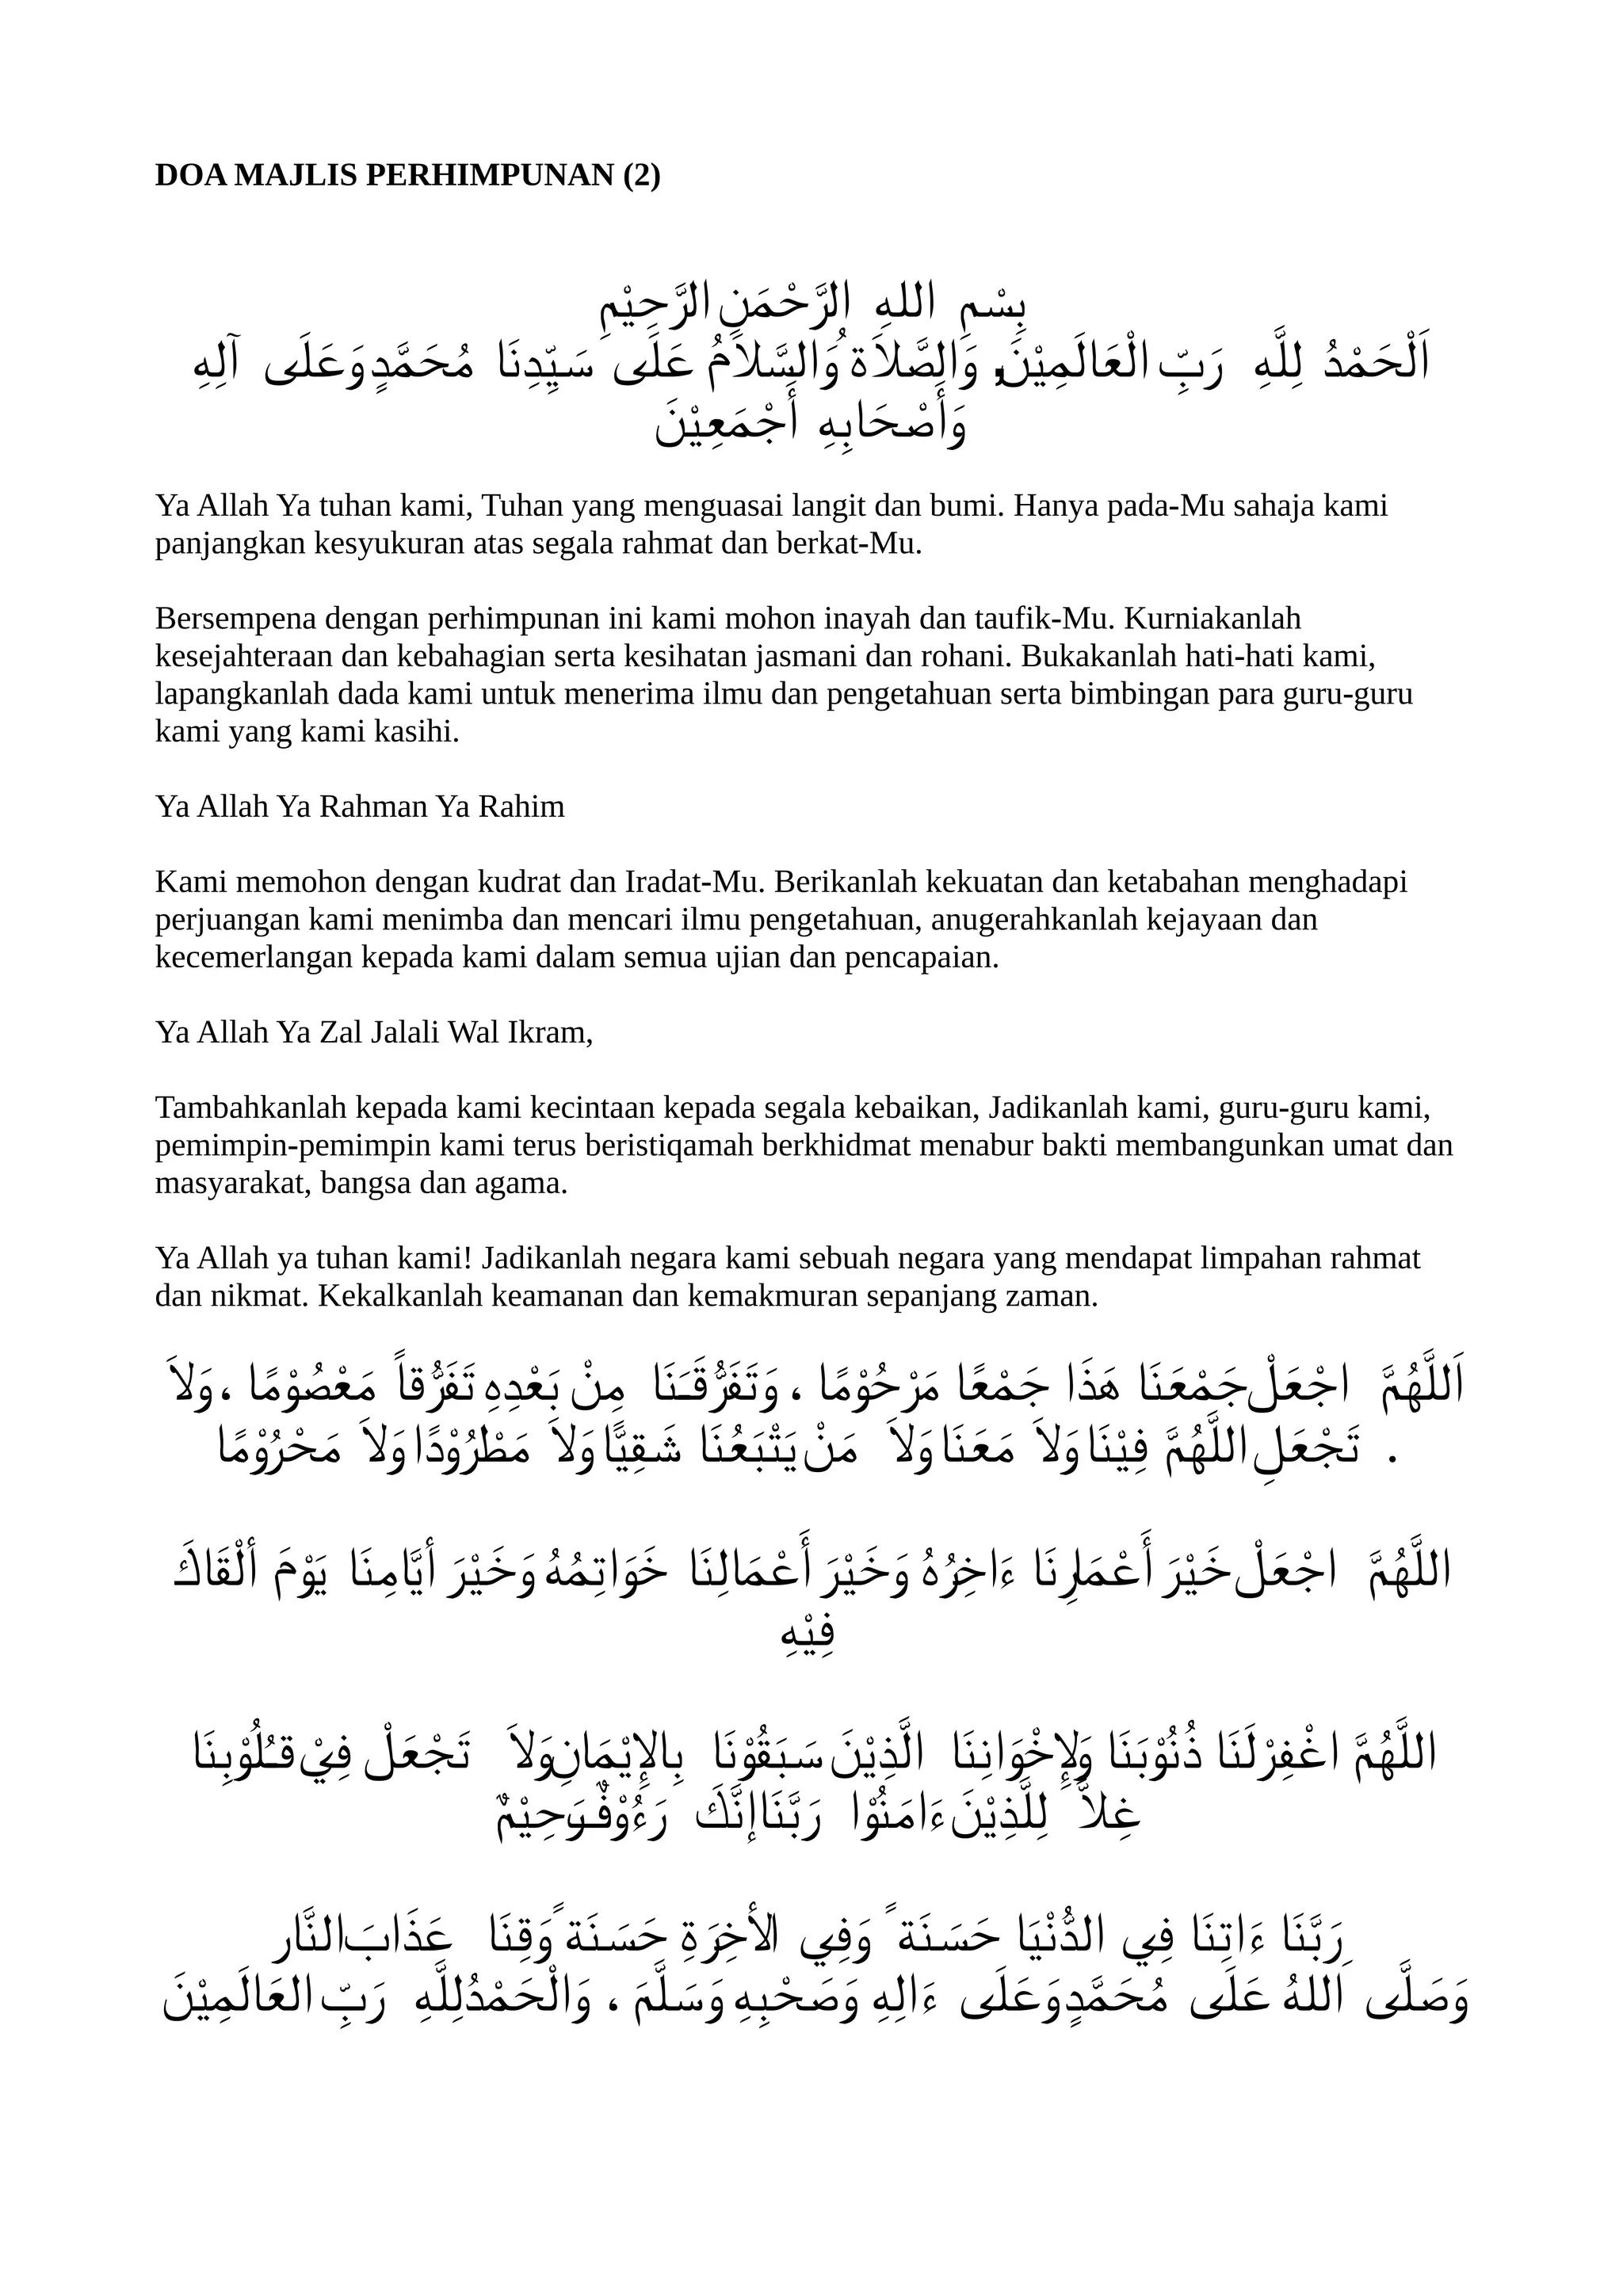 DOA MAJLIS PERHIMPUNAN (2)
بِسْمِ اللهِ الرَّحْمَنِ الرَّحِيْمِ
اَلْحَمْدُ لِلَّهِ رَبِّ الْعَالَمِيْنَ, وَالصَّلاَةُ وَالسَّلاَمُ عَلَى سَيِّدِنَا مُحَمَّدٍ وَعَلَى آلِهِ
وَأَصْحَابِهِ أَجْمَعِيْنَ
Ya Allah Ya tuhan kami, Tuhan yang menguasai langit dan bumi. Hanya pada-Mu sahaja kami
panjangkan kesyukuran atas segala rahmat dan berkat-Mu.
Bersempena dengan perhimpunan ini kami mohon inayah dan taufik-Mu. Kurniakanlah
kesejahteraan dan kebahagian serta kesihatan jasmani dan rohani. Bukakanlah hati-hati kami,
lapangkanlah dada kami untuk menerima ilmu dan pengetahuan serta bimbingan para guru-guru
kami yang kami kasihi.
Ya Allah Ya Rahman Ya Rahim
Kami memohon dengan kudrat dan Iradat-Mu. Berikanlah kekuatan dan ketabahan menghadapi
perjuangan kami menimba dan mencari ilmu pengetahuan, anugerahkanlah kejayaan dan
kecemerlangan kepada kami dalam semua ujian dan pencapaian.
Ya Allah Ya Zal Jalali Wal Ikram,
Tambahkanlah kepada kami kecintaan kepada segala kebaikan, Jadikanlah kami, guru-guru kami,
pemimpin-pemimpin kami terus beristiqamah berkhidmat menabur bakti membangunkan umat dan
masyarakat, bangsa dan agama.
Ya Allah ya tuhan kami! Jadikanlah negara kami sebuah negara yang mendapat limpahan rahmat
dan nikmat. Kekalkanlah keamanan dan kemakmuran sepanjang zaman.
اَللَّهُمَّ اجْعَلْ جَمْعَنَا هَذَا جَمْعًا مَرْحُوْمًا ، وَتَفَرُّقَـنَا مِنْ بَعْدِهِ تَفَرُّقاً مَعْصُوْمًا ، وَلاَ
تَجْعَلِ اللَّهُمَّ فِيْنَا وَلاَ مَعَنَا وَلاَ مَنْ يَتْبَعُنَا شَقِيًّا وَلاَ مَطْرُوْدًا وَلاَ مَحْرُوْمًا .
اللَّهُمَّ اجْعَلْ خَيْرَ أَعْمَارِنَا ءَاخِرُهُ وَخَيْرَ أَعْمَالِنَا خَوَاتِمُهُ وَخَيْرَ أيَّامِنَا يَوْمَ ألْقَاكَ
فِيْهِ
اللَّهُمَّ اغْفِرْلَنَا ذُنُوْبَنَا وَلإِخْوَانِنَا الَّذِيْنَ سَبَقُوْنَا بِالإِيْمَانِ وَلاَ تَجْعَلْ فِيْ قُـلُوْبِنَا
غِلاًّ لِلَّذِيْنَ ءَامَنُوْا رَبَّنَا إنَّكَ رَءُوْفٌ رَحِيْمٌ
رَبَّنَا ءَاتِنَا فِي الدُّنْيَا حَسَنَةً وَفِي الأَخِرَةِ حَسَنَةً وَقِنَا عَذَابَ النَّارِ
وَصَلَّى اللهُ عَلَى مُحَمَّدٍ وَعَلَى ءَالِهِ وَصَحْبِهِ وَسَلَّمَ ، وَالْحَمْدُ لِلَّهِ رَبِّ العَالَمِيْنَ